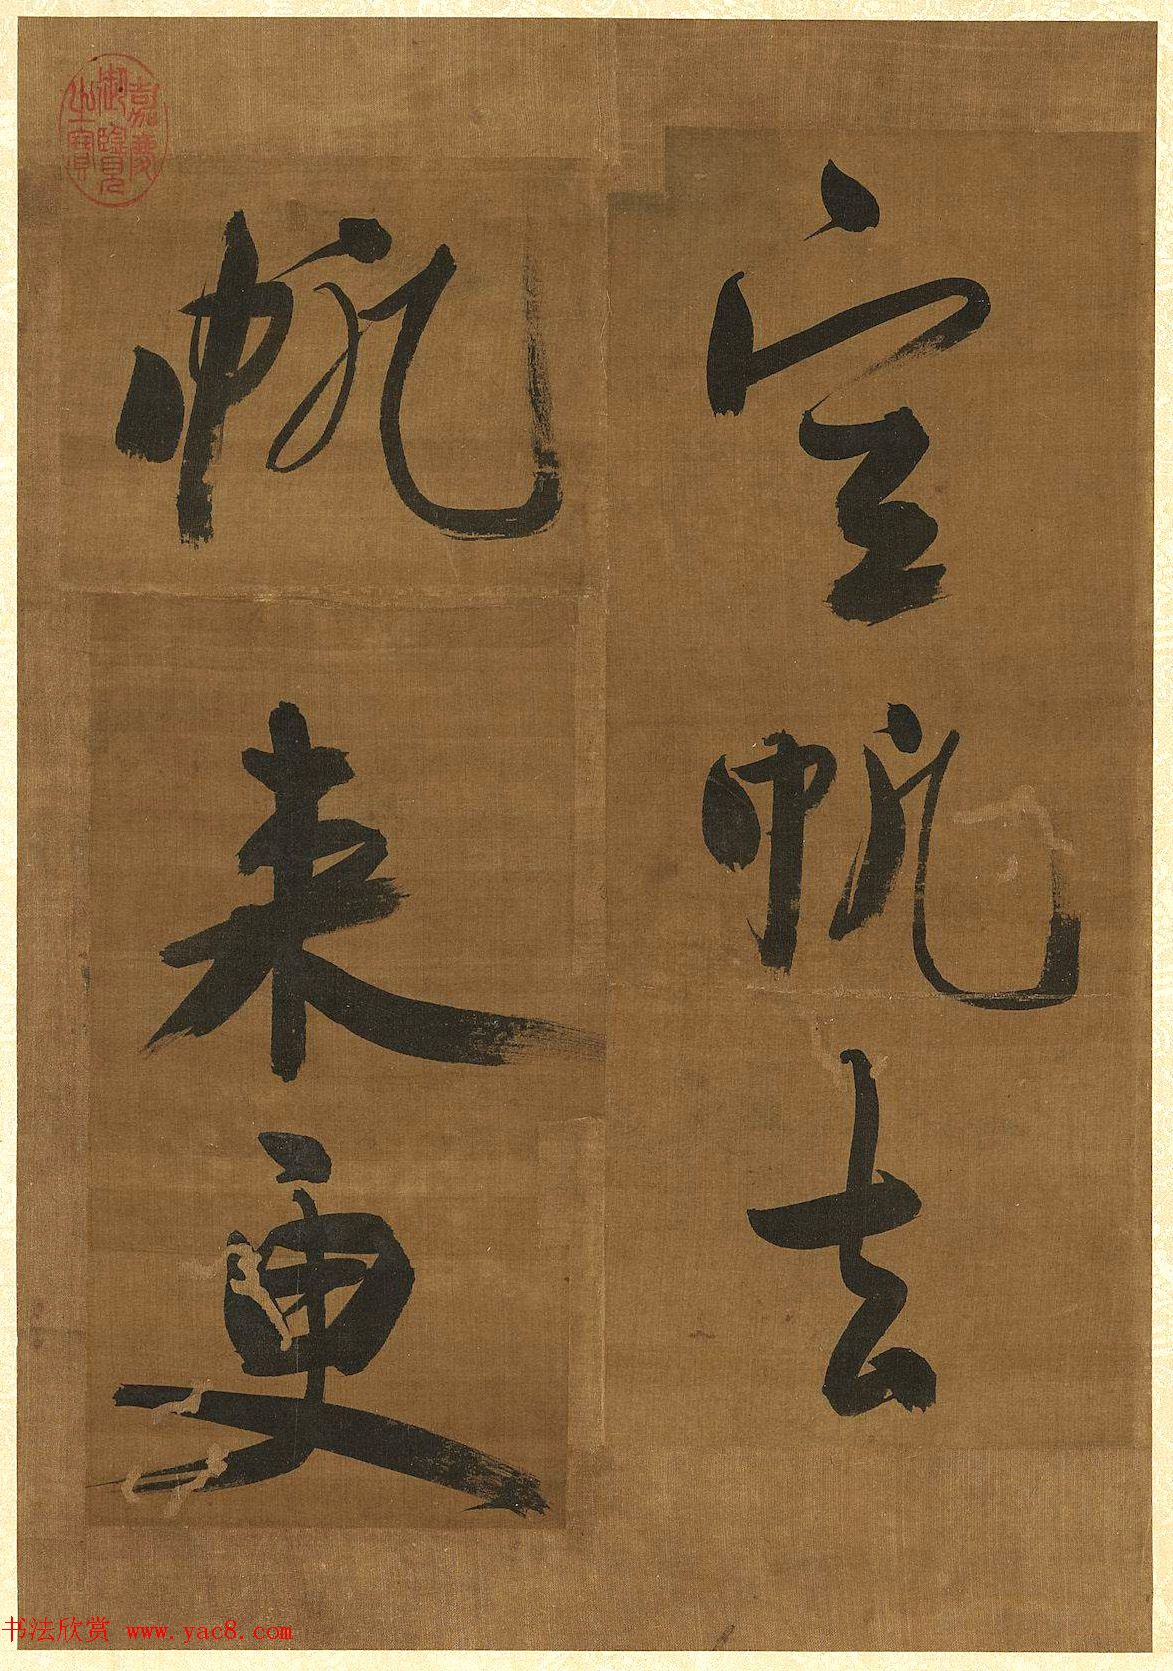 空帆去
帆来更
嘉慶
御覽
之寶
书法欣赏 www.yac8.com